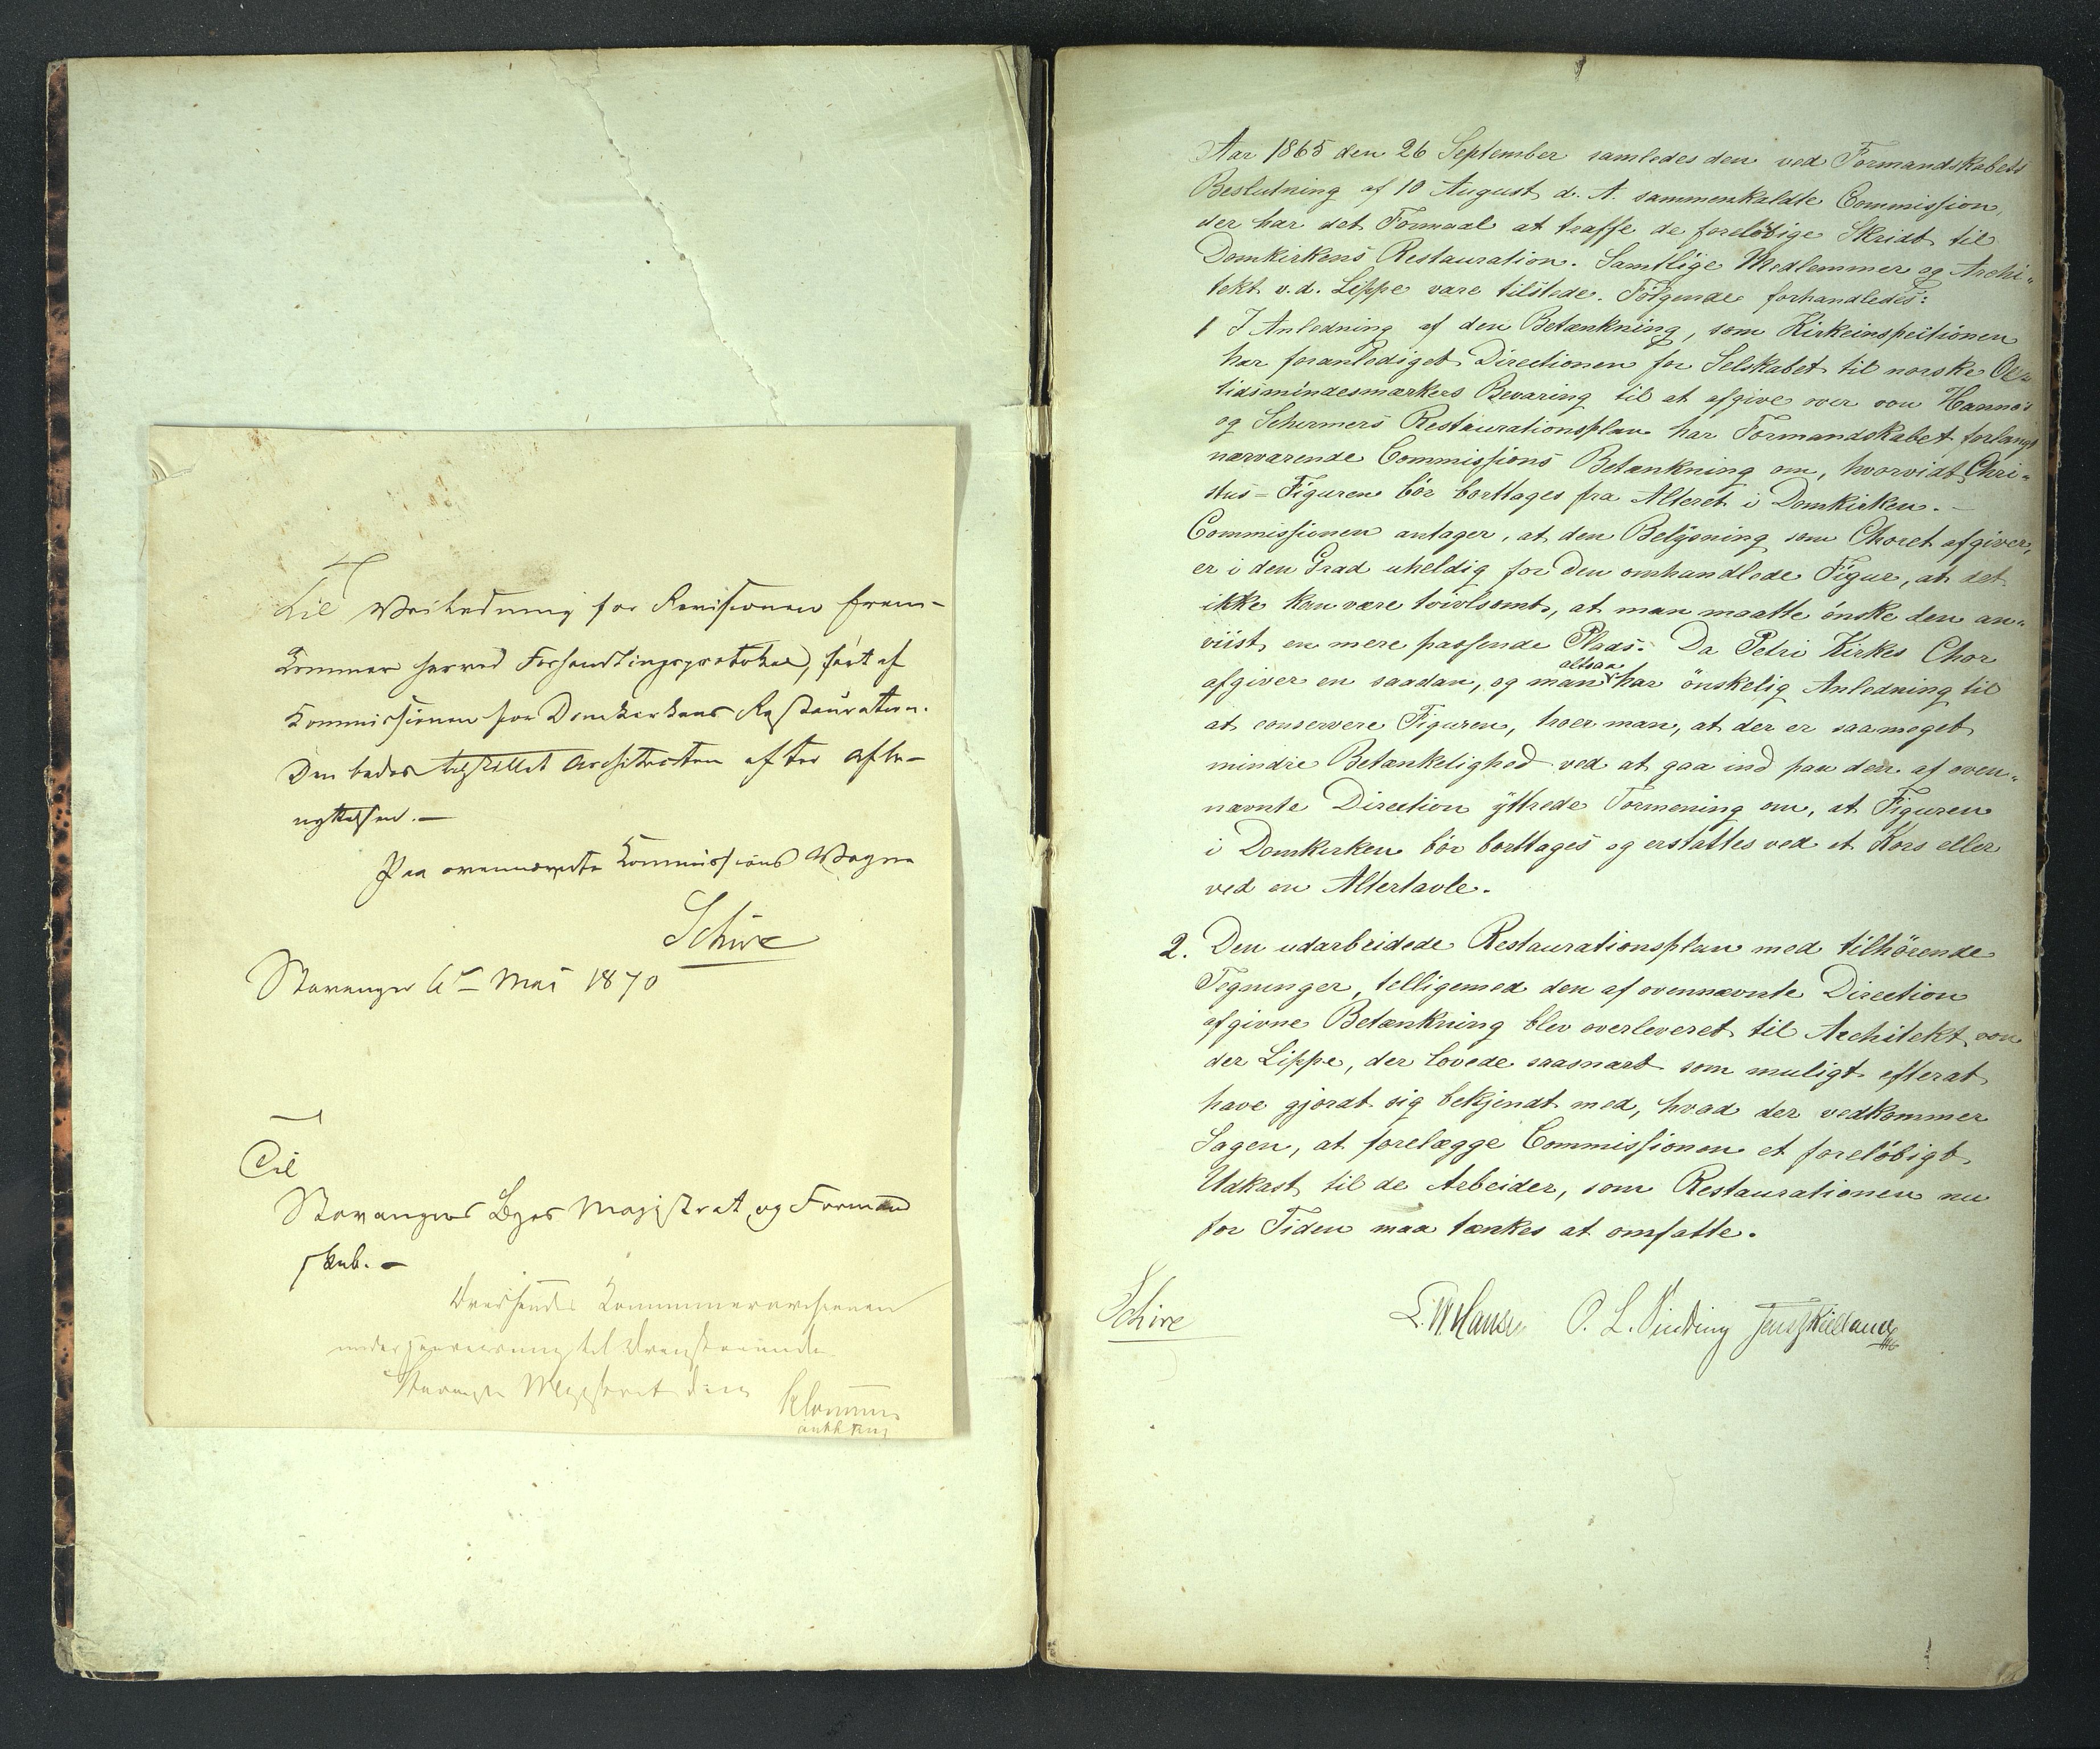 Til Veiledning for Revisionen frem-
kommer herved Forhandlingsprotokol, ført af
Kommissionen for Domkirkens Restauration.
Den bedes tilstillet Architecten efter afbe-
nyttelsen.-
Paa ovennævnte Kommissions Vegne
Schive
Stavanger 6te Mai 1870
Til
Stavangers Byes Magistrat og Formand
skab.-
Kommunerevisionen
til
Stavanger Magistrat
Aar 1865 den 26 September samledes den ved Formandskabets
Beslutning af 10 August d. A. sammenkaldte Commission,
der har det Formaal at træffe de foreløbige Skridt til
Domkirkens Restauration. Samtlige Medlemmer og Archi-
tekt v. d. Lippe vare tilstede. Følgende forhandledes:
1 I Anledning af den Betænkning, som Kirkeinspectionen
har foranlediget Directionen for Selskabet til norske For
tidsmindesmærkers Bevaring til at afgive over von Hanno's
og Schirmers Restaurationsplan har Formandskabet forlangt
nærværende Commissions Betænkning om, hvorvidt Chri-
stus-Figuren bör borttages fra Alteret i Domkirken.-
Commissionen antager, at den Belysning som Choret afgiver,
er i den Grad uheldig for den omhandlede Figur, at det
ikke kan være tvivlsomt, at man maatte önske den an-
viist en mere passende Plads. Da Petri Kirkes Chor
afgiver en saadan, og man altsaa har önskelig Anledning til
at conservere Figuren, troer man, at der er saameget
mindre Betænkelighed ved at gaa ind paa den af oven-
nævnte Direction yttrede Formening om, at Figuren
i Domkirken bör borttages og erstattes ved et Kors eller
ved en Altertavle.
2. Den udarbeidede Restaurationsplan med tilhörende
Tegninger, telligemed den af ovennævnte Direction
afgivne Betænkning blev overleveret til Architekt von
der Lippe, der lovede saasnart som muligt efterat
have gjordt sig bekjendt med, hvad der vedkommer
Sagen, at forelægge Commissionen et foreløbigt
Udkast til de Arbeider, som Restaurationen nu
for Tiden maa tænkes at omfatte.
Schive L. W. Hansen O. L. Sinding Jens Z Kielland